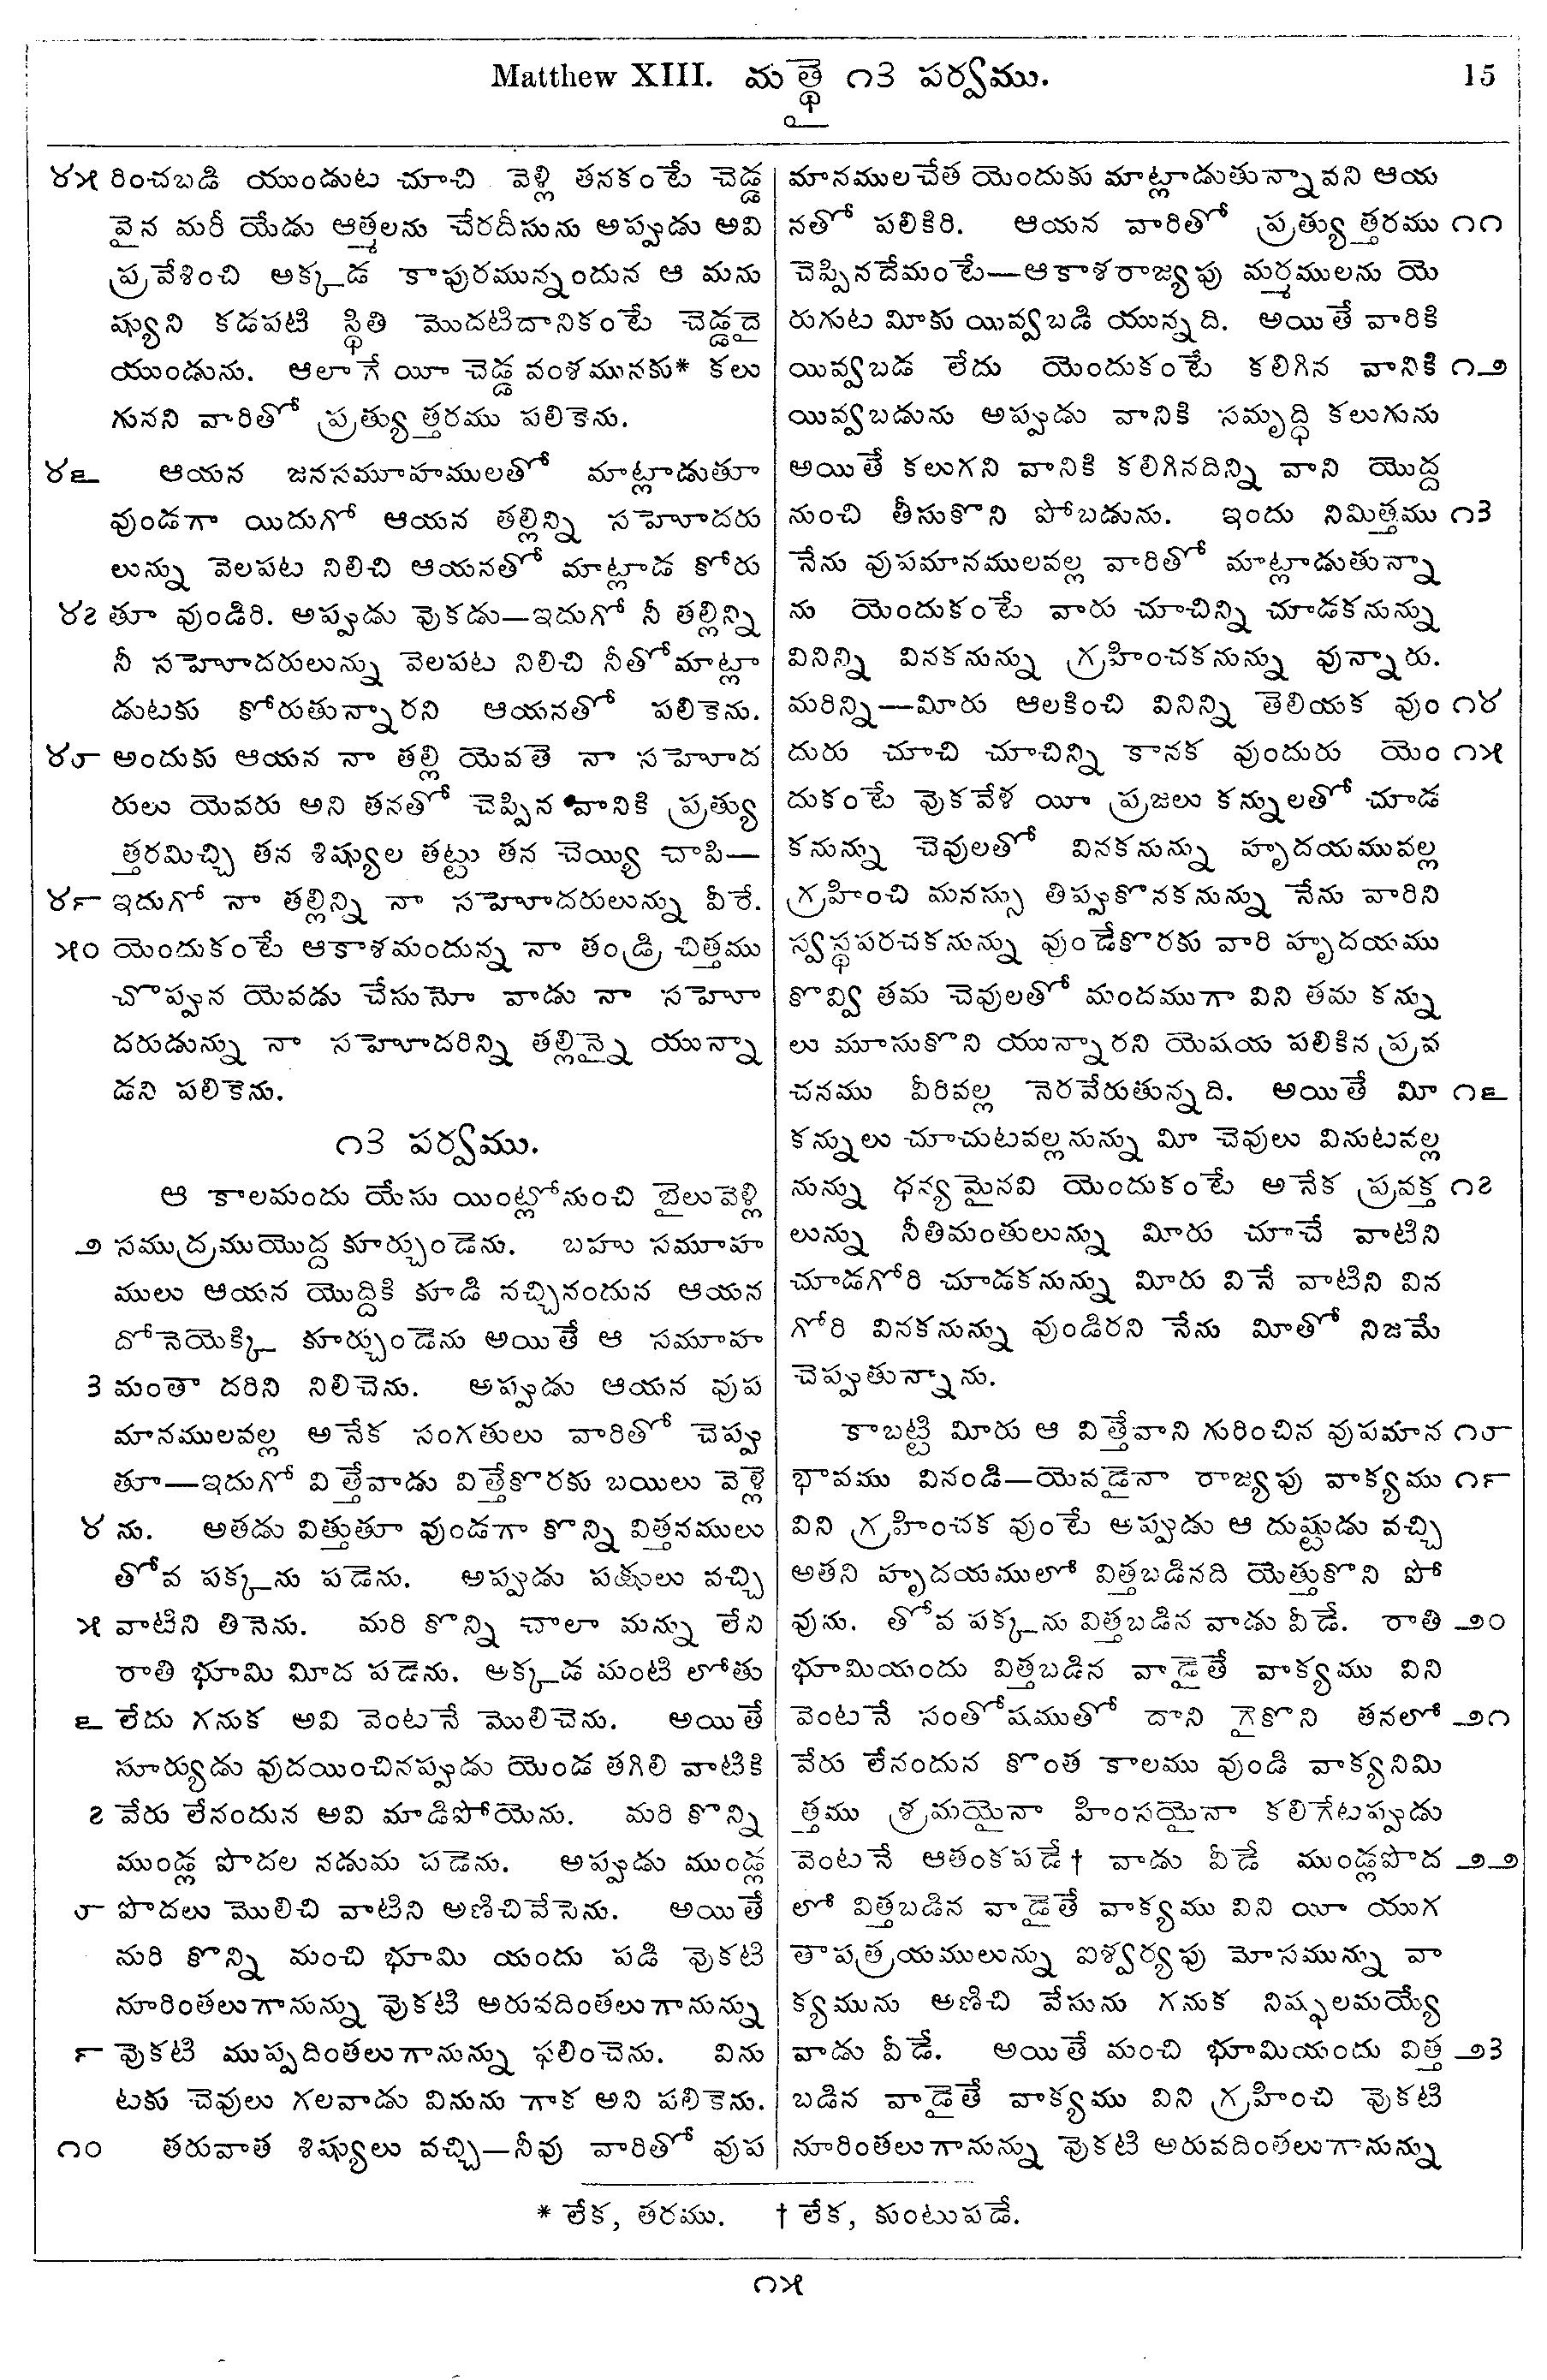 Matthew XIII. మత్థై ౧౩ పర్వము. 15
౪౫ రించబడి యుండుట చూచి వెళ్లి తనకంటే చెడ్డ
వైన మరీ యేడు ఆత్మలను చేరదీసును అప్పుడు అవి
ప్రవేశించి అక్కడ కాపురమున్నందున ఆ మను
ష్యుని కడపటి స్థితి మొదటిదానికంటే చెడ్డదై
యుండును. ఆలాగే యీ చెడ్డ వంశమునకు* కలు
గునని వారితో ప్రత్యుత్తరము పలికెను.
౪౬ ఆయన జనసమూహములతో మాట్లాడుతూ
వుండగా యిదుగో ఆయన తల్లిన్ని సహోదరు
లున్ను వెలపట నిలిచి ఆయనతో మాట్లాడ కోరు
౪౭ తూ వుండిరి. అప్పుడు వొకడు—ఇదుగో నీ తల్లిన్ని
నీ సహోదరులున్ను వెలపట నిలిచి నీతో మాట్లా
డుటకు కోరుతున్నారని ఆయనతో పలికెను.
౪౮ అందుకు ఆయన నా తల్లి యెవతె నా సహోద
రులు యెవరు అని తనతో చెప్పిన వానికి ప్రత్యు
త్తరమిచ్చి తన శిష్యుల తట్టు తన చెయ్యి చాపి—
౪౯ ఇదుగో నా తల్లిన్ని నా సహోదరులున్ను వీరే.
౫౦ యెందుకంటే ఆకాశమందున్న నా తండ్రి చిత్తము
చొప్పున యెవడు చేసునో వాడు నా సహో
దరుడున్ను నా సహోదరిన్ని తల్లిన్నై యున్నా
డని పలికెను.
౧౩ పర్వము.
ఆ కాలమందు యేసు యింట్లోనుంచి బైలువెళ్లి
౨ సముద్రముయొద్ద కూర్చుండెను. బహు సమూహ
ములు ఆయన యొద్దికి కూడి వచ్చినందున ఆయన
దోనెయెక్కి కూర్చుండెను అయితే ఆ సమూహ
౩ మంతా దరిని నిలిచెను. అప్పుడు ఆయన వుప
మానములవల్ల అనేక సంగతులు వారితో చెప్పు
తూ—ఇదుగో విత్తేవాడు విత్తేకొరకు బయిలు వెళ్లె
౪ ను. అతడు విత్తుతూ వుండగా కొన్ని విత్తనములు
తోవ పక్కను పడెను. అప్పుడు పక్షులు వచ్చి
౫ వాటిని తినెను. మరి కొన్ని చాలా మన్ను లేని
రాతి భూమి మీద పడెను. అక్కడ మంటి లోతు
౬ లేదు గనుక అవి వెంటనే మొలిచెను. అయితే
సూర్యుడు వుదయించినప్పుడు యెండ తగిలి వాటికి
౭ వేరు లేనందున అవి మాడిపోయెను. మరి కొన్ని
ముండ్ల పొదల నడుమ పడెను. అప్పుడు ముండ్ల
౮ పొదలు మొలిచి వాటిని అణిచివేసెను. అయితే
మరి కొన్ని మంచి భూమి యందు పడి వొకటి
నూరింతలుగానున్ను వొకటి అరువదింతలుగానున్ను
౯ వొకటి ముప్పదింతలుగానున్ను ఫలించెను. విను
టకు చెవులు గలవాడు వినును గాక అని పలికెను.
౧౦ తరువాత శిష్యులు వచ్చి—నీవు వారితో వుప
మానములచేత యెందుకు మాట్లాడుతున్నావని ఆయ
నతో పలికిరి. ఆయన వారితో ప్రత్యుత్తరము ౧౧
చెప్పినదేమంటే—ఆకాశరాజ్యపు మర్మములను యె
రుగుట మీకు యివ్వబడి యున్నది. అయితే వారికి
యివ్వబడ లేదు యెందుకంటే కలిగిన వానికి ౧౨
యివ్వబడును అప్పుడు వానికి సమృద్ధి కలుగును
అయితే కలుగని వానికి కలిగినదిన్ని వాని యొద్ద
నుంచి తీసుకొని పోబడును. ఇందు నిమిత్తము ౧౩
నేను వుపమానములవల్ల వారితో మాట్లాడుతున్నా
ను యెందుకంటే వారు చూచిన్ని చూడకనున్ను
వినిన్ని వినకనున్ను గ్రహించకనున్ను వున్నారు.
మరిన్ని—మీరు ఆలకించి వినిన్ని తెలియక వుం ౧౪
దురు చూచి చూచిన్ని కానక వుందురు యెం ౧౫
దుకంటే వొకవేళ యీ ప్రజలు కన్నులతో చూడ
కనున్ను చెవులతో వినకనున్ను హృదయమువల్ల
గ్రహించి మనస్సు తిప్పుకొనకనున్ను నేను వారిని
స్వస్థపరచకనున్ను వుండేకొరకు వారి హృదయము
కొవ్వి తమ చెవులతో మందముగా విని తమ కన్ను
లు మూసుకొని యున్నారని యెషయ పలికిన ప్రవ
చనము వీరివల్ల నెరవేరుతున్నది. అయితే మీ ౧౬
కన్నులు చూచుటవల్లనున్ను మీ చెవులు వినుటవల్ల
నున్ను ధన్యమైనవి యెందుకంటే అనేక ప్రవక్త ౧౭
లున్ను నీతిమంతులున్ను మీరు చూచే వాటిని
చూడగోరి చూడకనున్ను మీరు వినే వాటిని విన
గోరి వినకనున్ను వుండిరని నేను మీతో నిజమే
చెప్పుతున్నాను.
కాబట్టి మీరు ఆ విత్తేవాని గురించిన వుపమాన ౧౮
భావము వినండి—యెవడైనా రాజ్యపు వాక్యము ౧౯
విని గ్రహించక వుంటే అప్పుడు ఆ దుష్టుడు వచ్చి
అతని హృదయములో విత్తబడినది యెత్తుకొని పో
వును. తోవ పక్కను విత్తబడిన వాడు వీడే. రాతి ౨౦
భూమియందు విత్తబడిన వాడైతే వాక్యము విని
వెంటనే సంతోషముతో దాని గైకొని తనలో ౨౧
వేరు లేనందున కొంత కాలము వుండి వాక్యనిమి
త్తము శ్రమయైనా హింసయైనా కలిగేటప్పుడు
వెంటనే ఆతంకపడే† వాడు వీడే ముండ్లపొద ౨౨
లో విత్తబడిన వాడైతే వాక్యము విని యీ యుగ
తాపత్రయములున్ను ఐశ్వర్యపు మోసమున్ను వా
క్యమును అణిచి వేసును గనుక నిష్ఫలమయ్యే
వాడు వీడే. అయితే మంచి భూమియందు విత్త ౨౩
బడిన వాడైతే వాక్యము విని గ్రహించి వొకటి
నూరింతలుగానున్ను వొకటి అరువదింతలుగానున్ను
* లేక, తరము. † లేక, కుంటుపడే.
౧౫